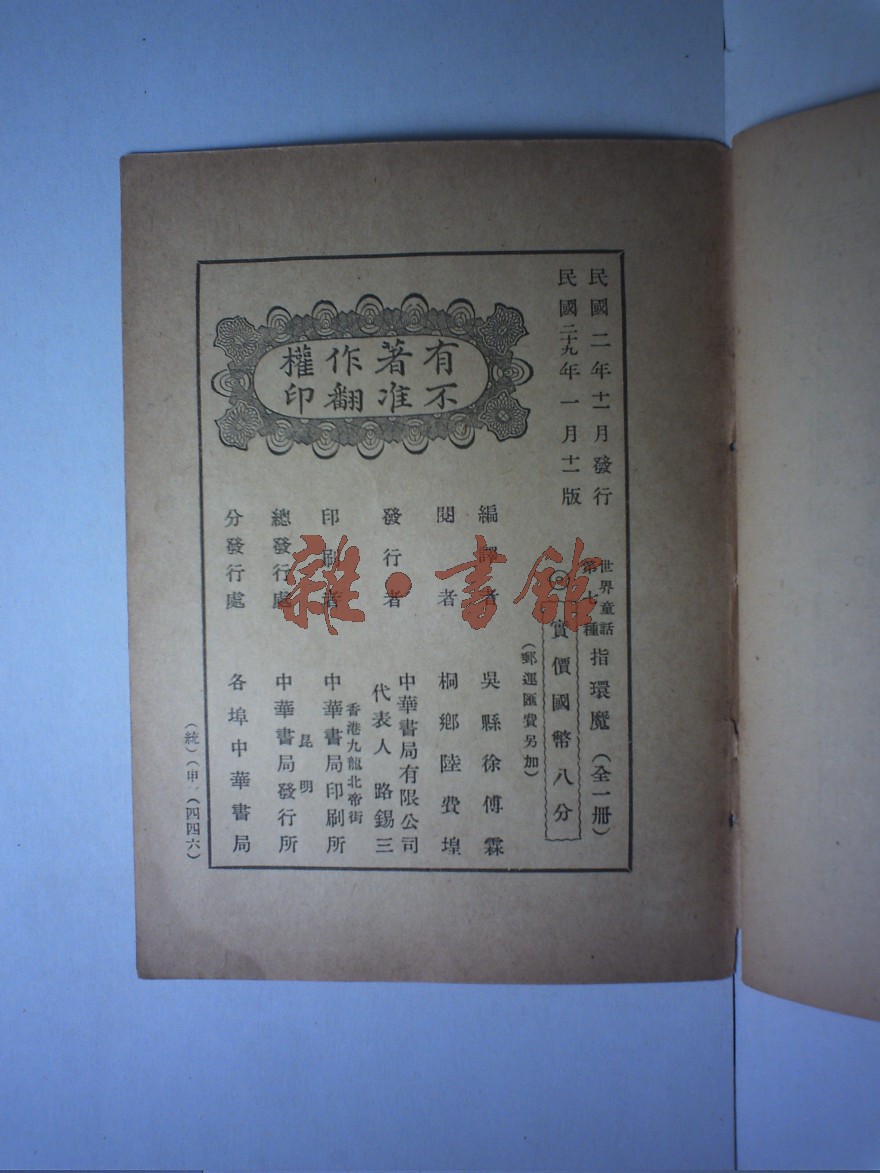 民國二年十一月發行
民國二十九年一月十一版
世界童話
第七種
指環魔（全一冊）
實價國幣八分
（郵運匯費另加）
有著作權
不准翻印
編譯者 吳縣徐傅霖
閱者 桐鄉陸費堭
發行者 中華書局有限公司
代表人 路錫三
印刷者 香港九龍北帝街
中華書局印刷所
總發行處 昆明
中華書局發行所
分發行處 各埠中華書局
（統）（申）（四四六）
雜·書館